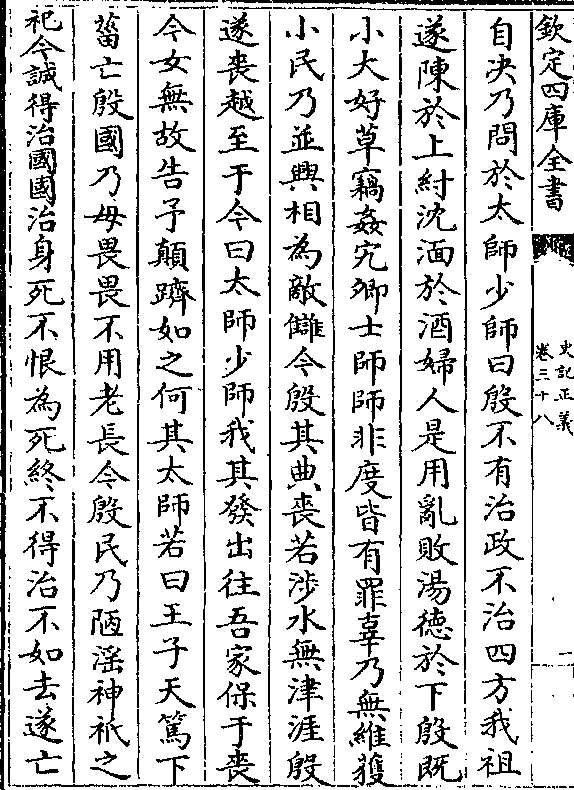 欽定四庫全書
史記正義
卷三十八
一
自決乃問於太師少師曰殷不有治政不治四方我祖
遂陳於上紂沈湎於酒婦人是用亂敗湯德於下殷既
小大好草竊姦宄卿士師師非度皆有罪辜乃無維獲
小民乃並興相為敵讎今殷其典喪若涉水無津涯殷
遂喪越至于今曰太師少師我其發出往吾家保于喪
今女無故告予顛躋如之何其太師若曰王子天篤下
菑亡殷國乃毋畏畏不用老長今殷民乃陋淫神祇之
祀今誠得治國國治身死不恨為死終不得治不如去遂亡